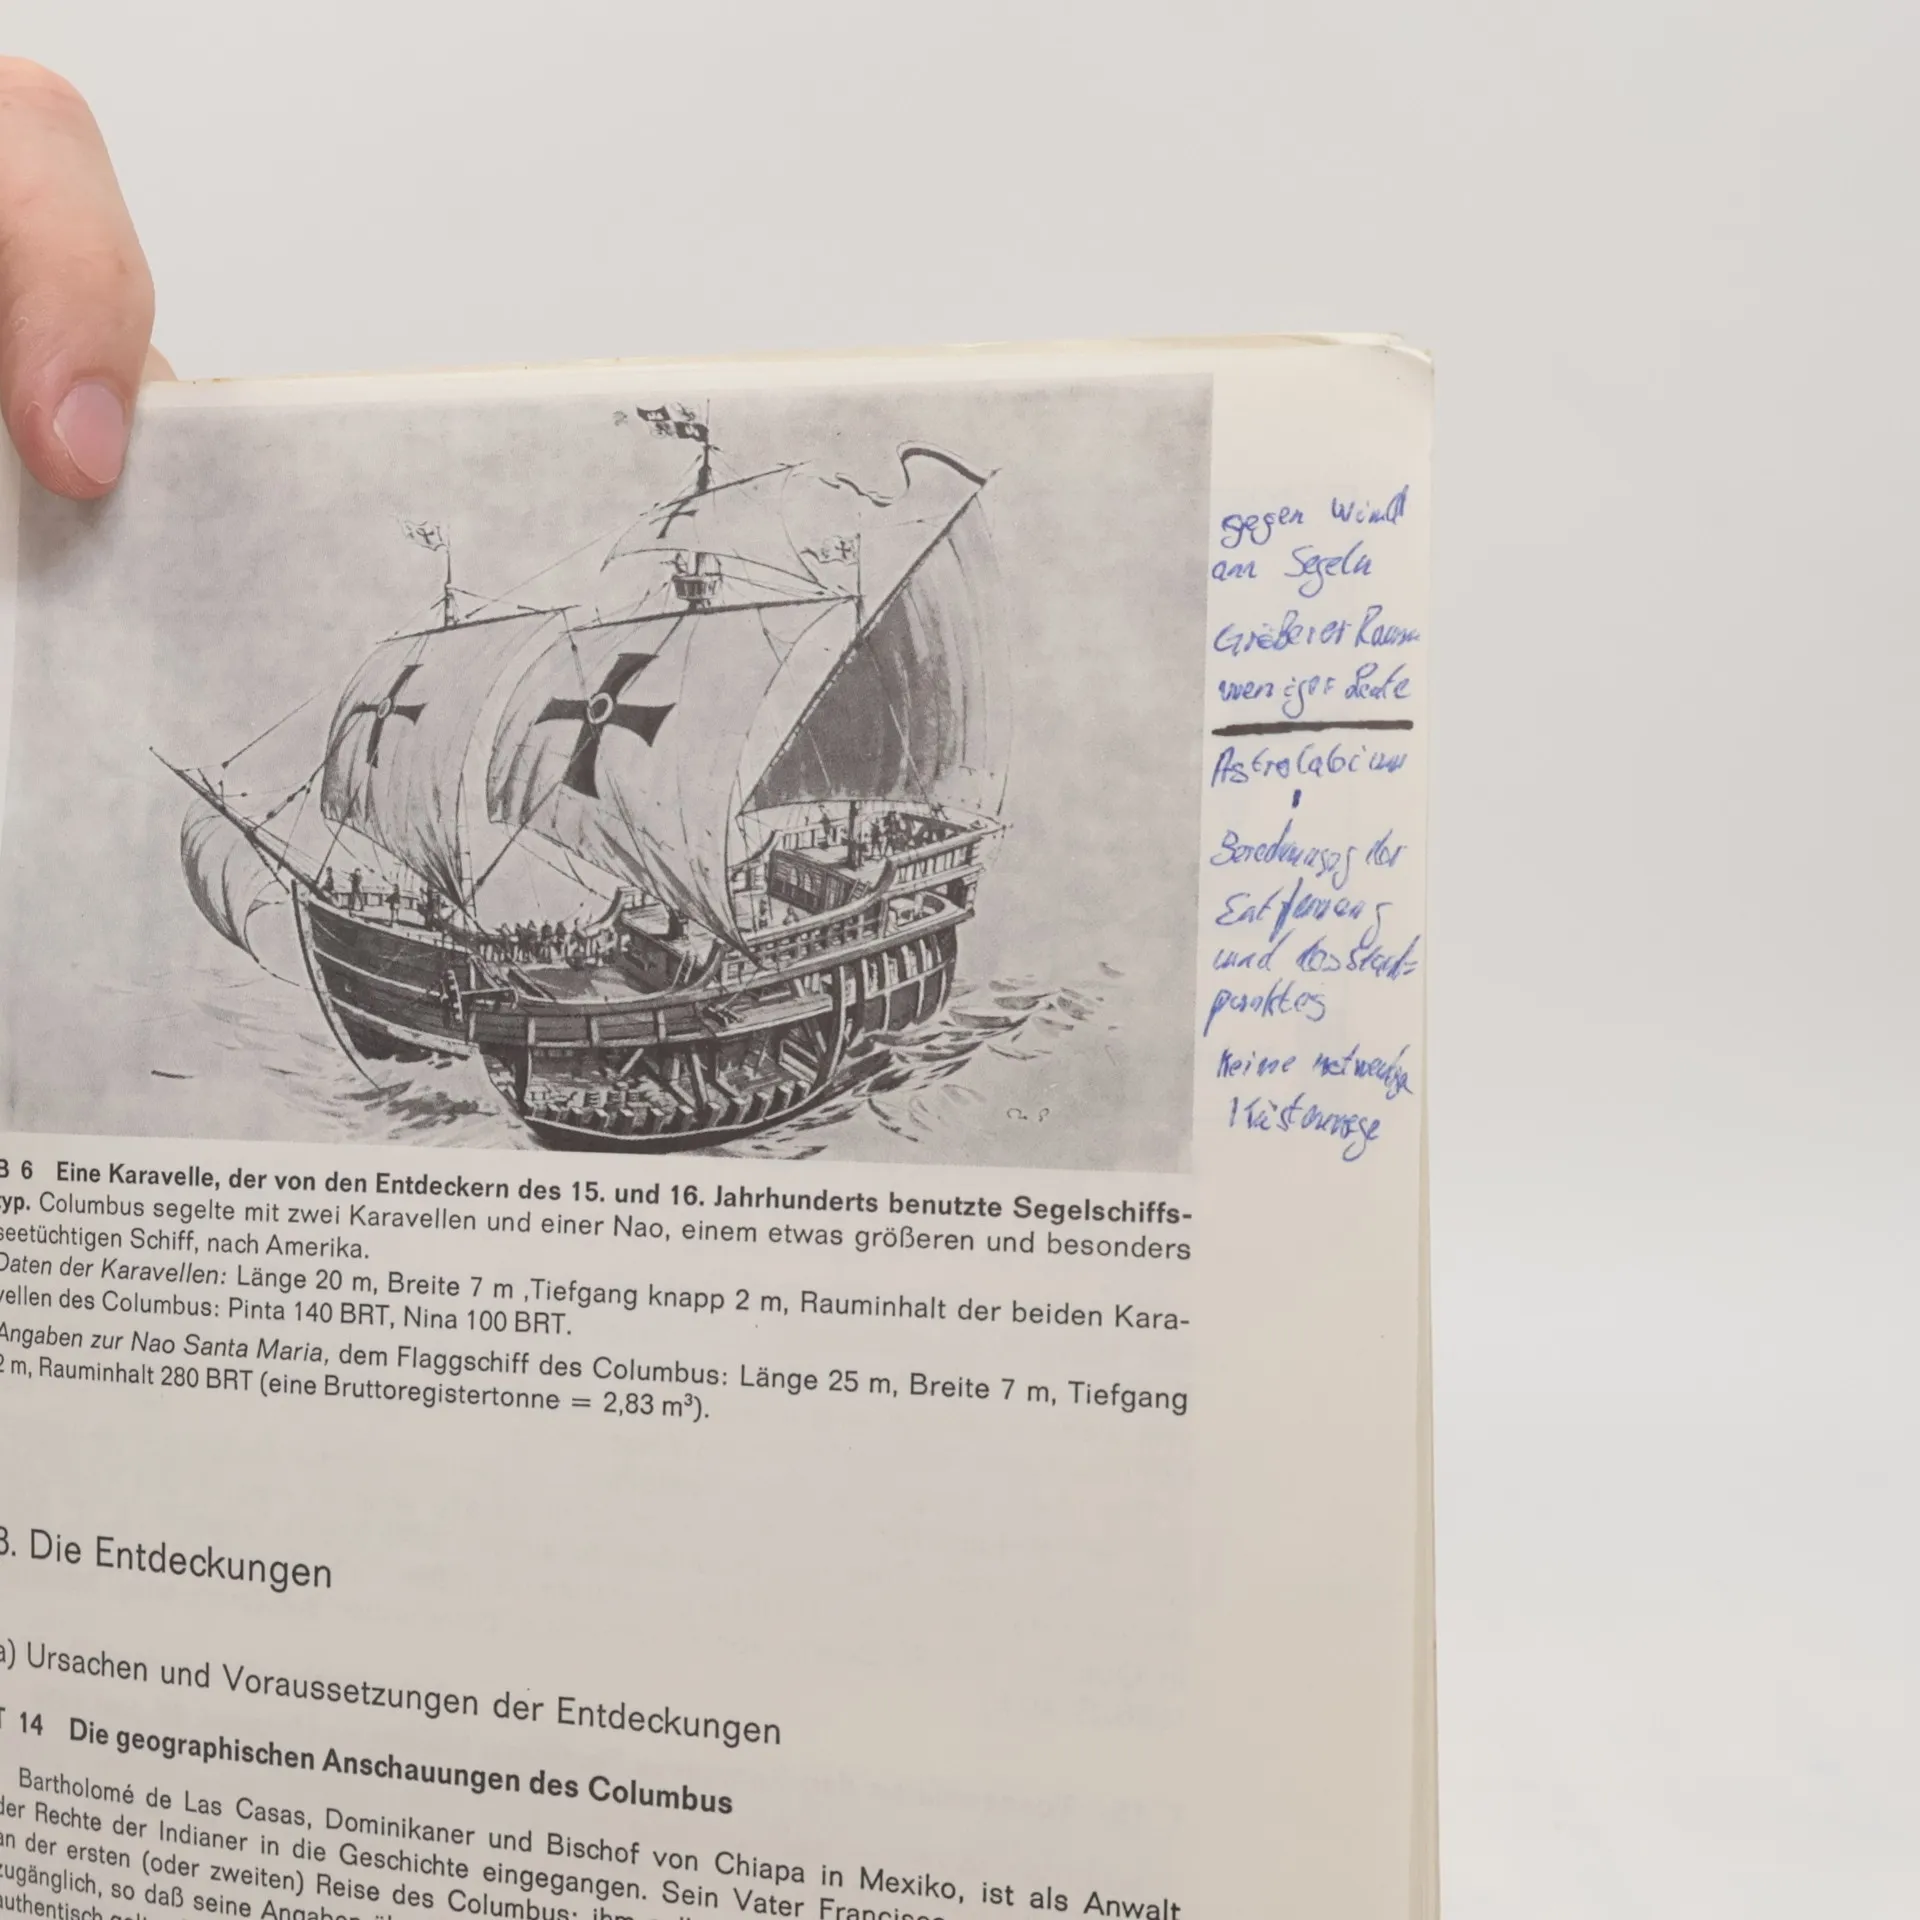 gegen Wind
an Segeln
Größerer Raum
weniger Leute
Astrolabium
Berechnung der
Entfernung
und des Stand=
punktes
Keine notwendige
Küstennähe
B 6 Eine Karavelle, der von den Entdeckern des 15. und 16. Jahrhunderts benutzte Segelschiffs-
typ. Columbus segelte mit zwei Karavellen und einer Nao, einem etwas größeren und besonders
seetüchtigen Schiff, nach Amerika.
Daten der Karavellen: Länge 20 m, Breite 7 m ,Tiefgang knapp 2 m, Rauminhalt der beiden Kara-
vellen des Columbus: Pinta 140 BRT, Nina 100 BRT.
Angaben zur Nao Santa Maria, dem Flaggschiff des Columbus: Länge 25 m, Breite 7 m, Tiefgang
2 m, Rauminhalt 280 BRT (eine Bruttoregistertonne = 2,83 m³).
3. Die Entdeckungen
a) Ursachen und Voraussetzungen der Entdeckungen
T 14 Die geographischen Anschauungen des Columbus
Bartholomé de Las Casas, Dominikaner und Bischof von Chiapa in Mexiko, ist als Anwalt
der Rechte der Indianer in die Geschichte eingegangen. Sein Vater Francisco
an der ersten (oder zweiten) Reise des Columbus; ihm
zugänglich, so daß seine Angaben
authentisch